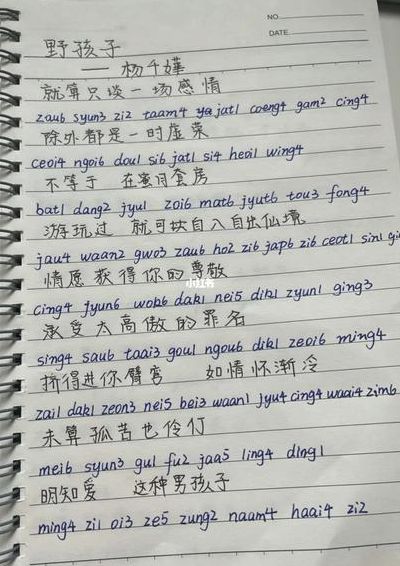 NO.
DATE
野孩子
—— 杨千嬅
就算只谈一场感情
zau6 syun3 zi2 taam4 ya jat1 coeng4 gam2 cing4
除外都是一时虚荣
ceoi4 ngoi6 dou1 si6 jat1 si4 heoi1 wing4
不等于 在蜜月套房
bat1 dang2 jyu1 zoi6 mat6 jyut6 tou3 fong4
游玩过 就可以自入自出仙境
jau4 waan2 gwo3 zau6 ho2 zi6 jap6 zi6 ceot1 sin1
情愿获得你的尊敬
cing4 jyun6 wok6 dak1 nei5 dik1 zyun1 ging3
小红书
承受太高傲的罪名
sing4 sau6 taai3 gou1 ngou6 dik1 zeoi6 ming4
挤得进你臂弯 如情怀渐冷
zai1 dak1 zeon3 nei5 bei3 waan1 jyu4 cing4 waai4 zim6
未算孤苦也伶仃
mei6 syun3 gu1 fu2 jaa5 ling4 ding1
明知爱 这种男孩子
ming4 zi1 oi3 ze5 zung2 naam4 haai4 zi2